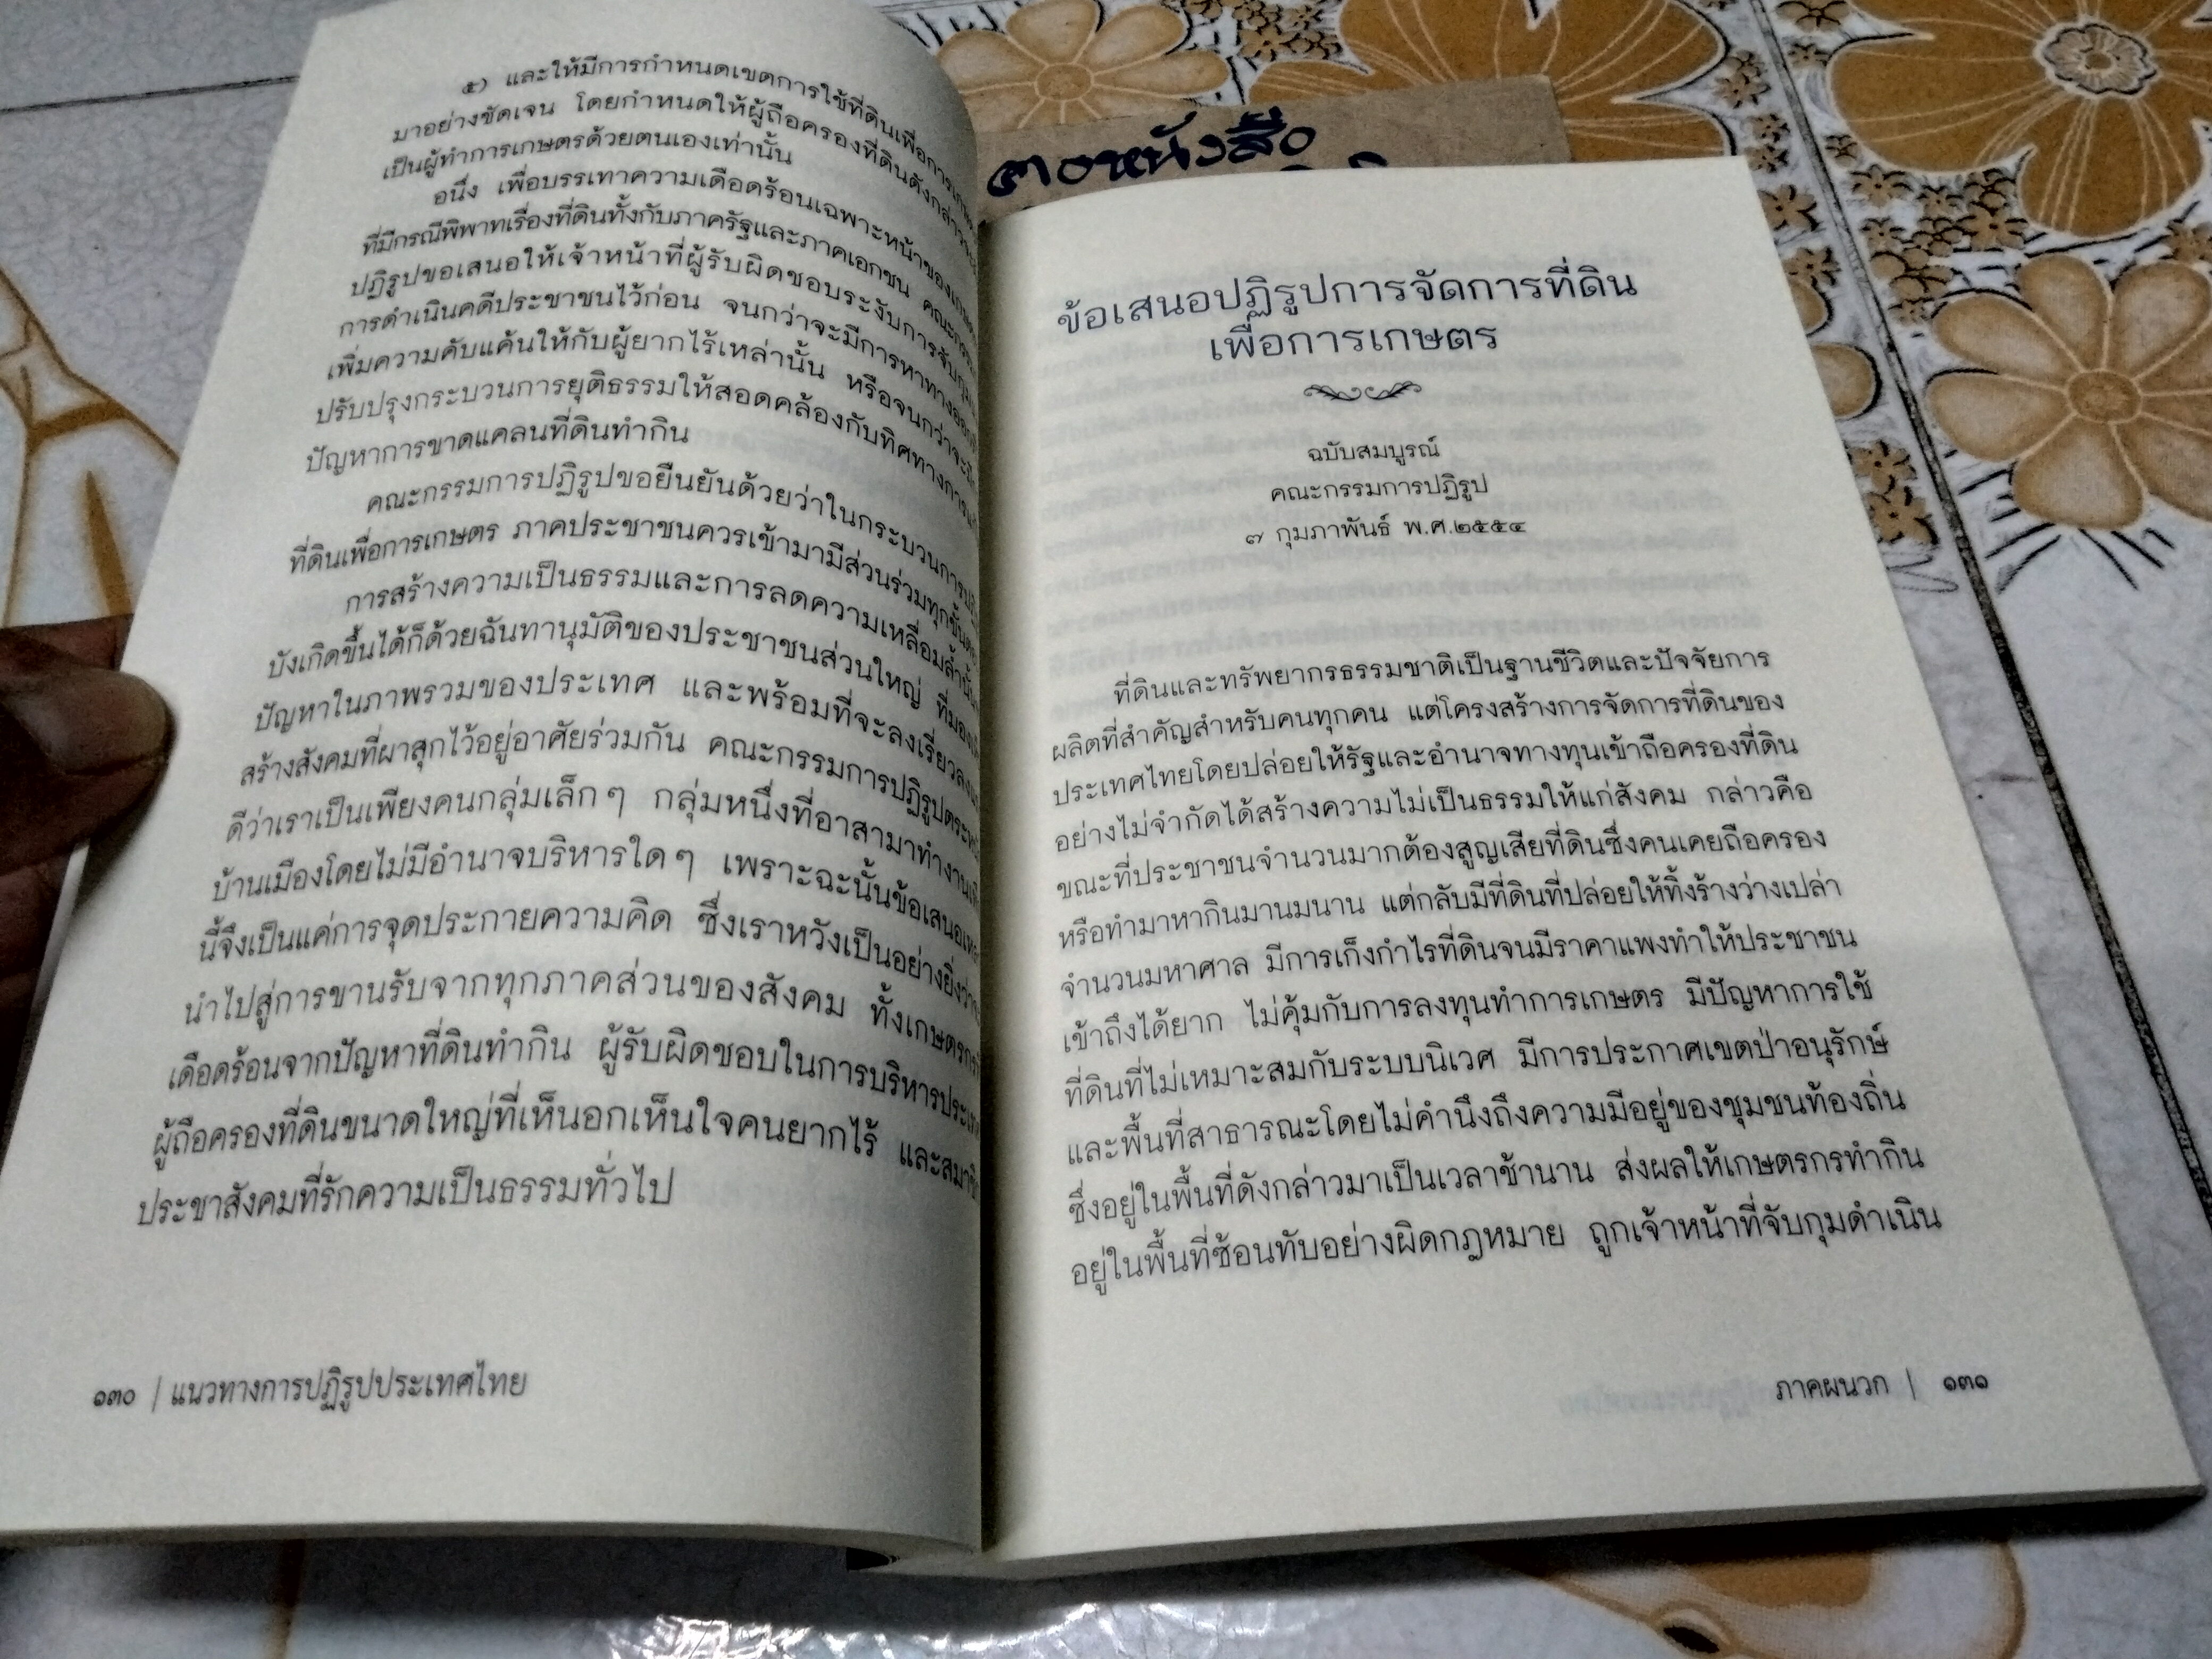 ๕) และให้มีการกำหนดเขตการใช้ที่ดินเพื่อการ
มาอย่างชัดเจน โดยกำหนดให้ผู้ถือครองที่ดินดังกล่าว
เป็นผู้ทำการเกษตรด้วยตนเองเท่านั้น
อนึ่ง เพื่อบรรเทาความเดือดร้อนเฉพาะหน้าของ
ที่มีกรณีพิพาทเรื่องที่ดินทั้งกับภาครัฐและภาคเอกชน
ปฏิรูปขอเสนอให้เจ้าหน้าที่ผู้รับผิดชอบระงับการจับกุม
การดำเนินคดีประชาชนไว้ก่อน จนกว่าจะมีการหาทางออก
เพิ่มความคับแค้นให้กับผู้ยากไร้เหล่านั้น หรือจนกว่าจะ
ปรับปรุงกระบวนการยุติธรรมให้สอดคล้องกับทิศทางการ
ปัญหาการขาดแคลนที่ดินทำกิน
คณะกรรมการปฏิรูปขอยืนยันด้วยว่าในกระบวนการ
ที่ดินเพื่อการเกษตร ภาคประชาชนควรเข้ามามีส่วนร่วมทุกขั้นตอน
การสร้างความเป็นธรรมและการลดความเหลื่อมล้ำนั้น
บังเกิดขึ้นได้ก็ด้วยฉันทานุมัติของประชาชนส่วนใหญ่
ปัญหาในภาพรวมของประเทศ และพร้อมที่จะลงเรี่ยวลงแรง
สร้างสังคมที่ผาสุกไว้อยู่อาศัยร่วมกัน คณะกรรมการปฏิรูปตระหนัก
ดีว่าเราเป็นเพียงคนกลุ่มเล็กๆ กลุ่มหนึ่งที่อาสามาทำงาน
บ้านเมืองโดยไม่มีอำนาจบริหารใดๆ เพราะฉะนั้นข้อเสนอ
นี้จึงเป็นแค่การจุดประกายความคิด ซึ่งเราหวังเป็นอย่างยิ่งว่า
นำไปสู่การขานรับจากทุกภาคส่วนของสังคม ทั้งเกษตรกร
เดือดร้อนจากปัญหาที่ดินทำกิน ผู้รับผิดชอบในการบริหารประเทศ
ผู้ถือครองที่ดินขนาดใหญ่ที่เห็นอกเห็นใจคนยากไร้ และสมาชิก
ประชาสังคมที่รักความเป็นธรรมทั่วไป
๑๓๐ | แนวทางการปฏิรูปประเทศไทย
หนังสือ
ข้อเสนอปฏิรูปการจัดการที่ดิน
เพื่อการเกษตร
ฉบับสมบูรณ์
คณะกรรมการปฏิรูป
๗ กุมภาพันธ์ พ.ศ.๒๕๕๔
ที่ดินและทรัพยากรธรรมชาติเป็นฐานชีวิตและปัจจัยการ
ผลิตที่สำคัญสำหรับคนทุกคน แต่โครงสร้างการจัดการที่ดินของ
ประเทศไทยโดยปล่อยให้รัฐและอำนาจทางทุนเข้าถือครองที่ดิน
อย่างไม่จำกัดได้สร้างความไม่เป็นธรรมให้แก่สังคม กล่าวคือ
ขณะที่ประชาชนจำนวนมากต้องสูญเสียที่ดินซึ่งคนเคยถือครอง
หรือทำมาหากินมานมนาน แต่กลับมีที่ดินที่ปล่อยให้ทิ้งร้างว่างเปล่า
จำนวนมหาศาล มีการเก็งกำไรที่ดินจนมีราคาแพงทำให้ประชาชน
เข้าถึงได้ยาก ไม่คุ้มกับการลงทุนทำการเกษตร มีปัญหาการใช้
ที่ดินที่ไม่เหมาะสมกับระบบนิเวศ มีการประกาศเขตป่าอนุรักษ์
และพื้นที่สาธารณะโดยไม่คำนึงถึงความมีอยู่ของชุมชนท้องถิ่น
ซึ่งอยู่ในพื้นที่ดังกล่าวมาเป็นเวลาช้านาน ส่งผลให้เกษตรกรทำกิน
อยู่ในพื้นที่ซ้อนทับอย่างผิดกฎหมาย ถูกเจ้าหน้าที่จับกุมดำเนิน
ภาคผนวก | ๑๓๑